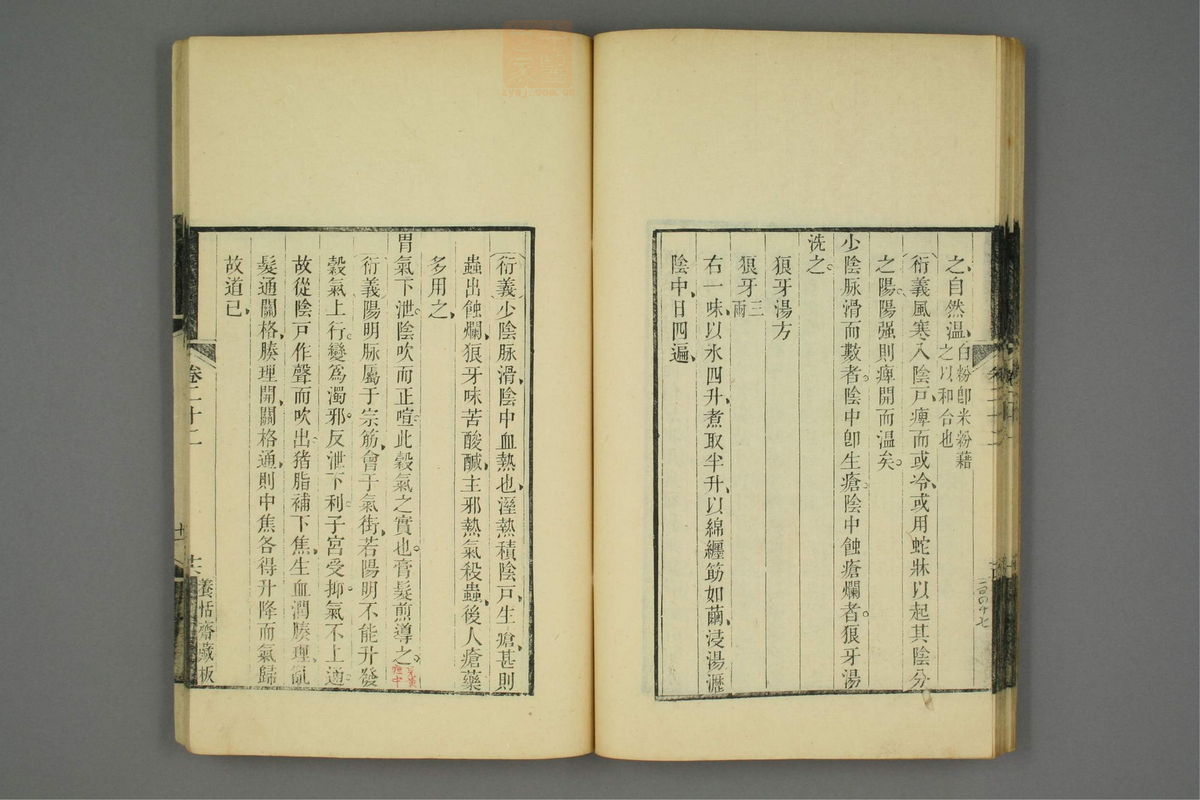 之、自然温、白粉卽米粉藉
之以和合也
衍義風寒入陰戸、痺而或冷、或用蛇牀以起其陰分
之陽。陽强則痺開而温矣。
少陰脉滑而數者。陰中卽生瘡。陰中蝕瘡爛者。狼牙湯
洗之。
狼牙湯方
狼牙三兩
右一味、以水四升、煮取半升、以綿纏筯如繭、浸湯瀝
陰中、日四遍、
二百四十七
衍義少陰脉滑、陰中血熱也、溼熱積陰戸、生瘡、甚則
蟲出蝕爛、狼牙味苦酸醎、主邪熱氣、殺蟲、後人瘡藥
多用之、
胃氣下泄。陰吹而正喧。此穀氣之實也。膏髮煎導之。
見黄疸中
衍義陽明脉屬于宗筋、會于氣街、若陽明不能升發
穀氣上行。變爲濁邪。反泄下利。子宮受抑。氣不上通。
故從陰戸作聲而吹出。猪脂補下焦、生血潤腠理、亂
髮通關格、腠理開、關格通、則中焦各得升降而氣歸
故道已、
卷二十二
十二
廿六
養恬齋藏板